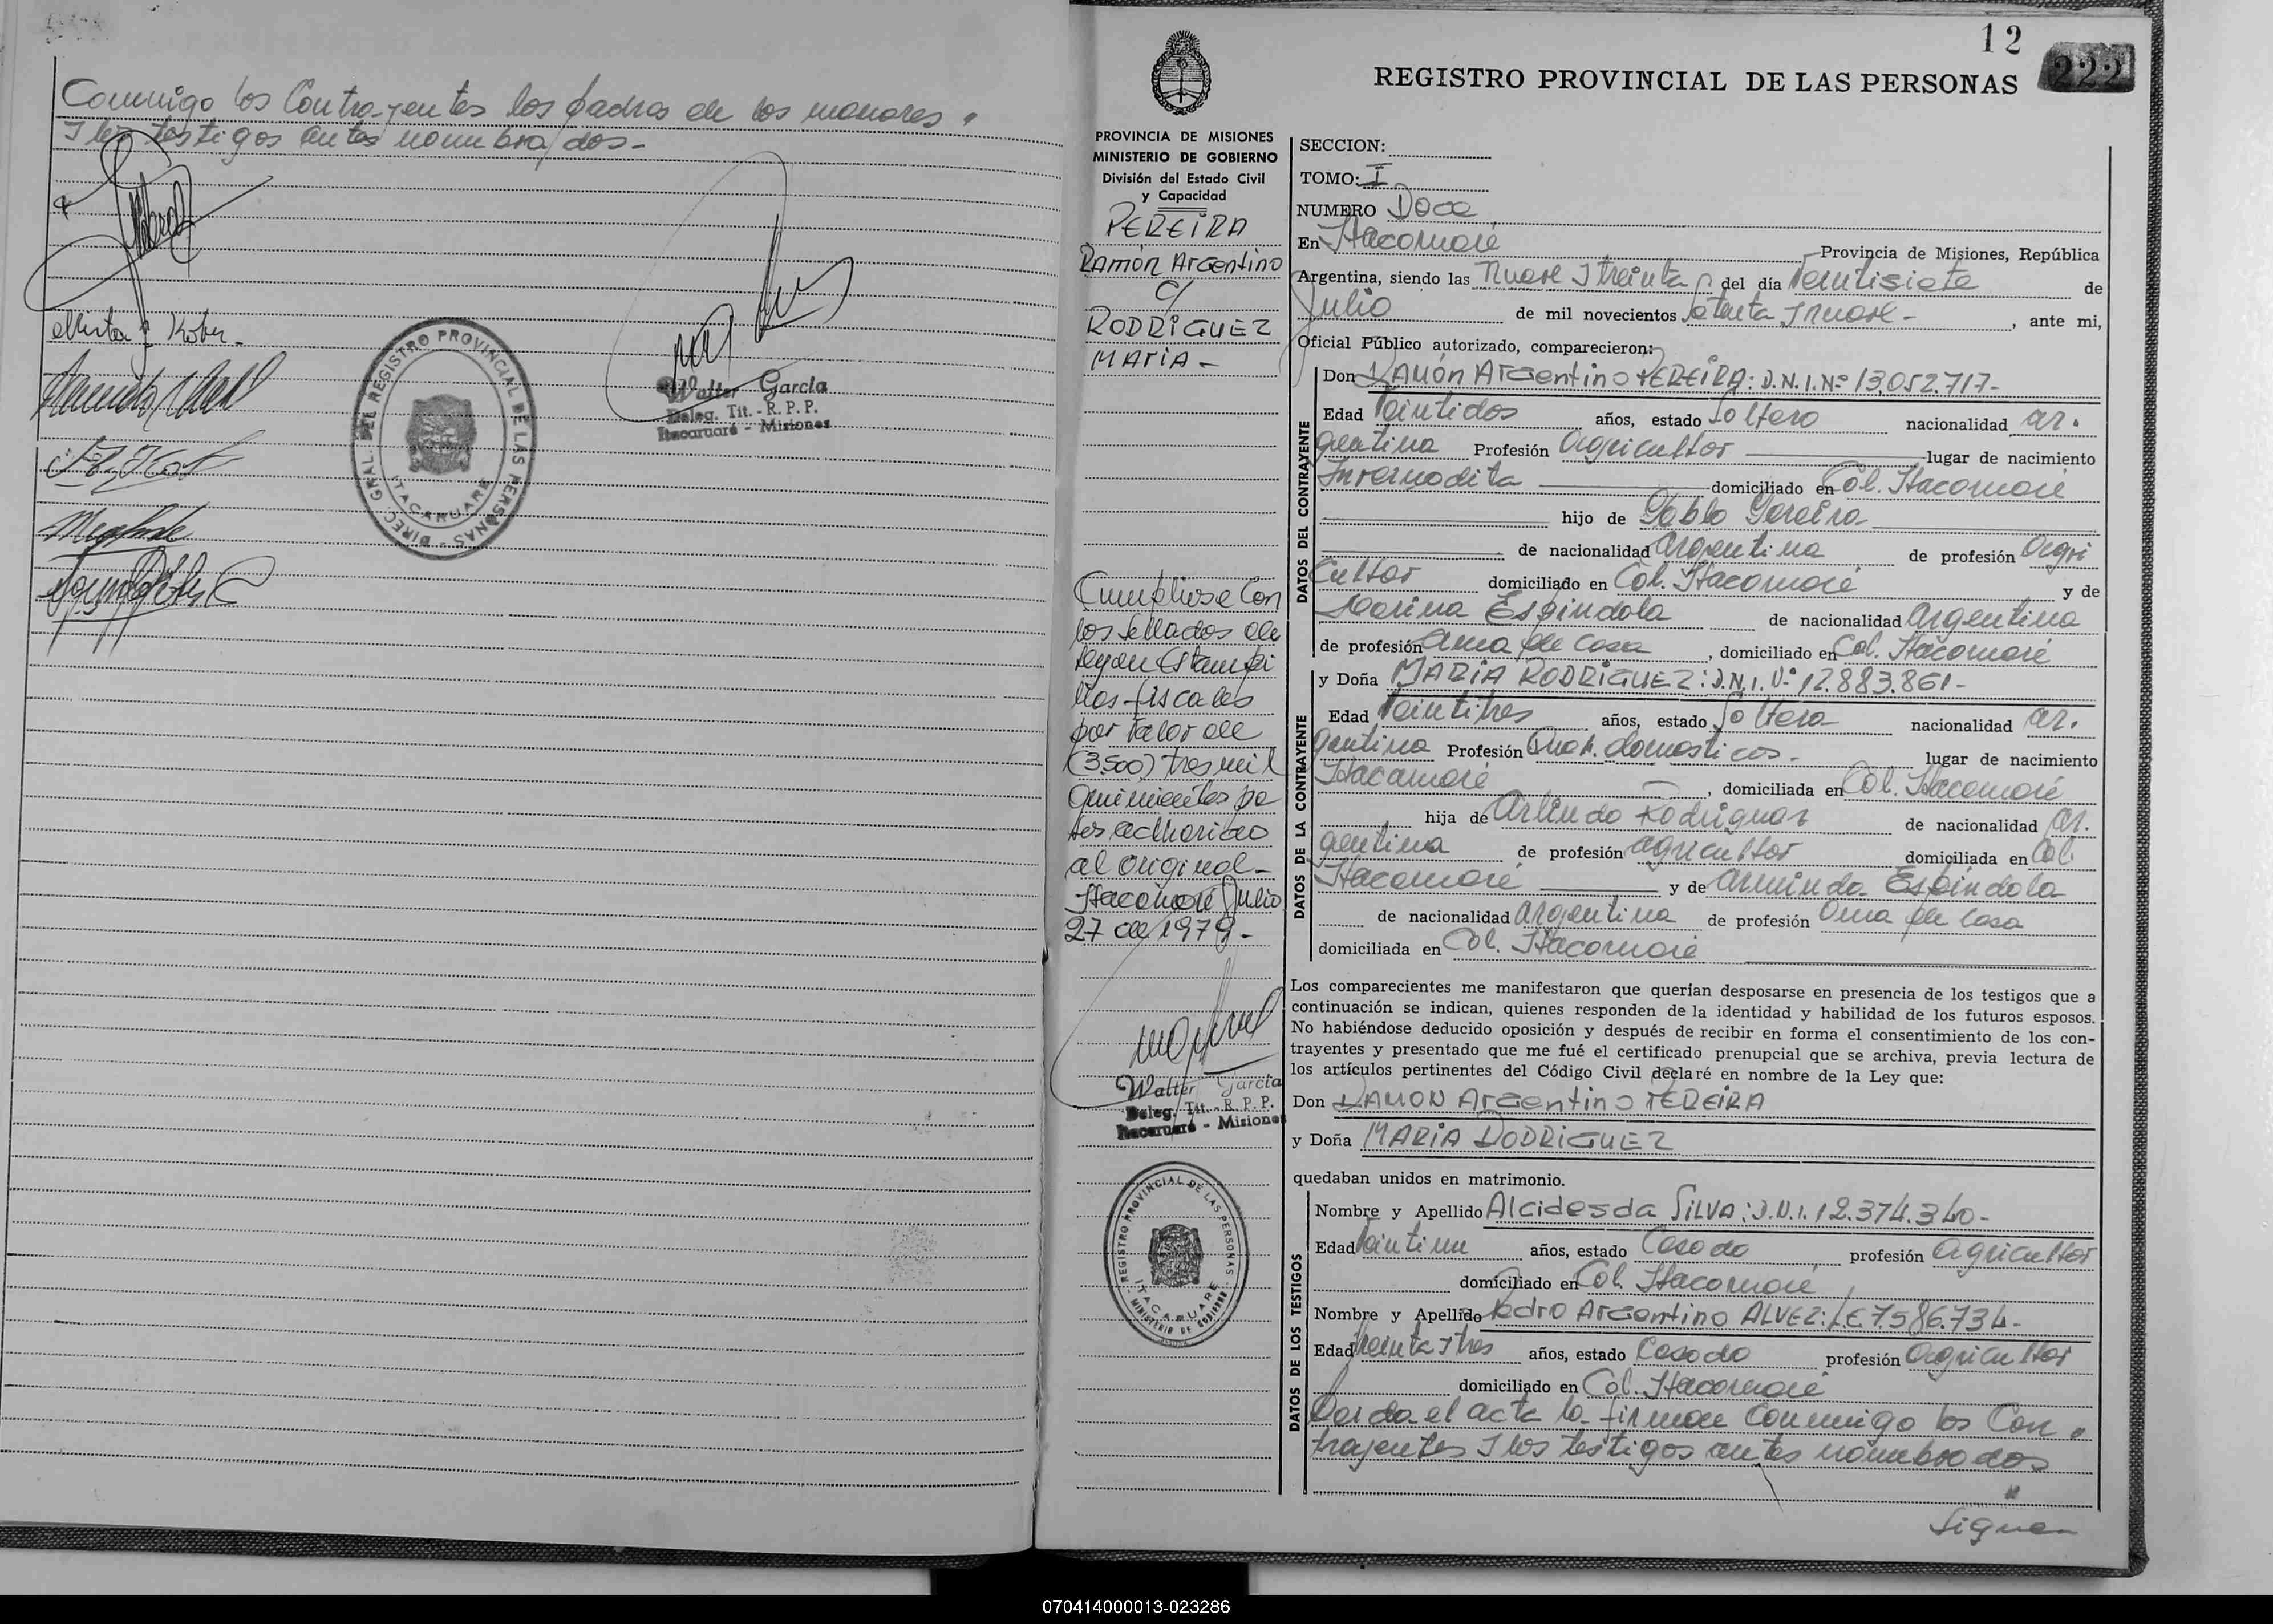 Conmigo los Contrayentes los padres de los menores "
I los testigos antes nombra/dos-
Mirta Kober -
DIREC. GRAL. DEL REGISTRO PROVINCIAL DE LAS PERSONAS
ITACARUARE
Walter García
Deleg. Tit. - R. P. P.
Itacaruaré - Misiones
12
222
REGISTRO PROVINCIAL DE LAS PERSONAS
PROVINCIA DE MISIONES
MINISTERIO DE GOBIERNO
División del Estado Civil
y Capacidad
PEREIRA
Ramón Argentino
c/
RODRIGUEZ
MARIA -
Cumpliose Con
los sellados de
ley en Estampi
llas fiscales
por valor de
(3.500) tres mil
quinientos pe
sos adherido
al original -
Itacaruaré Julio
27 de 1979.-
Walter García
Deleg. Tit. - R. P. P.
Itacaruaré - Misiones
REGISTRO PROVINCIAL DE LAS PERSONAS
ITACARUARE
MINISTERIO DE GOBIERNO
SECCION:
TOMO: I
NUMERO Doce
En Itacaruaré Provincia de Misiones, República
Argentina, siendo las Nueve I treinta del día Veintisiete de
Julio de mil novecientos Setenta I nueve - , ante mi,
Oficial Público autorizado, comparecieron:
DATOS DEL CONTRAYENTE
Don RAMÓN ArGentino PEREIRA: D.N.I. Nº 13,052.717-
Edad Veintidos años, estado Soltero nacionalidad ar.
gentina Profesión Agricultor lugar de nacimiento
domiciliado en Col. Itacaruaré
hijo de Pablo Pereira
de nacionalidad Argentina de profesión Agri
cultor domiciliado en Col. Itacaruaré y de
Marina Espindola de nacionalidad Argentina
de profesión Ama de Casa , domiciliado en Col. Itacaruaré
DATOS DE LA CONTRAYENTE
y Doña MARIA RODRIGUEZ: D.N.I. Nº 12.883.861-
Edad Veintitres años, estado Soltera nacionalidad ar.
gentina Profesión Queh. domesticos. - lugar de nacimiento
Itacaruaré , domiciliada en Col. Itacaruaré
hija de Arlindo Rodriguez de nacionalidad Ar.
gentina de profesión agricultor domiciliada en Col.
Itacaruaré y de Arminda Espindola
de nacionalidad Argentina de profesión Ama de Casa
domiciliada en Col. Itacaruaré
Los comparecientes me manifestaron que querían desposarse en presencia de los testigos que a
continuación se indican, quienes responden de la identidad y habilidad de los futuros esposos.
No habiéndose deducido oposición y después de recibir en forma el consentimiento de los con-
trayentes y presentado que me fué el certificado prenupcial que se archiva, previa lectura de
los artículos pertinentes del Código Civil declaré en nombre de la Ley que:
Don RAMON ArGentino PEREIRA
y Doña MARIA RODRIGUEZ
quedaban unidos en matrimonio.
DATOS DE LOS TESTIGOS
Nombre y Apellido Alcides da SILVA: D.N.I. 12.374.340-
Edad Veintiun años, estado Casado profesión Agricultor
domiciliado en Col. Itacaruaré
Nombre y Apellido Pedro Argentino ALVEZ: L.E. 7.586.734-
Edad treinta I tres años, estado Casado profesión Agricultor
domiciliado en Col. Itacaruaré
Leida el acta la firman Conmigo los Con "
trayentes I los testigos antes nombrados
"
Siguen
070414000013-023286